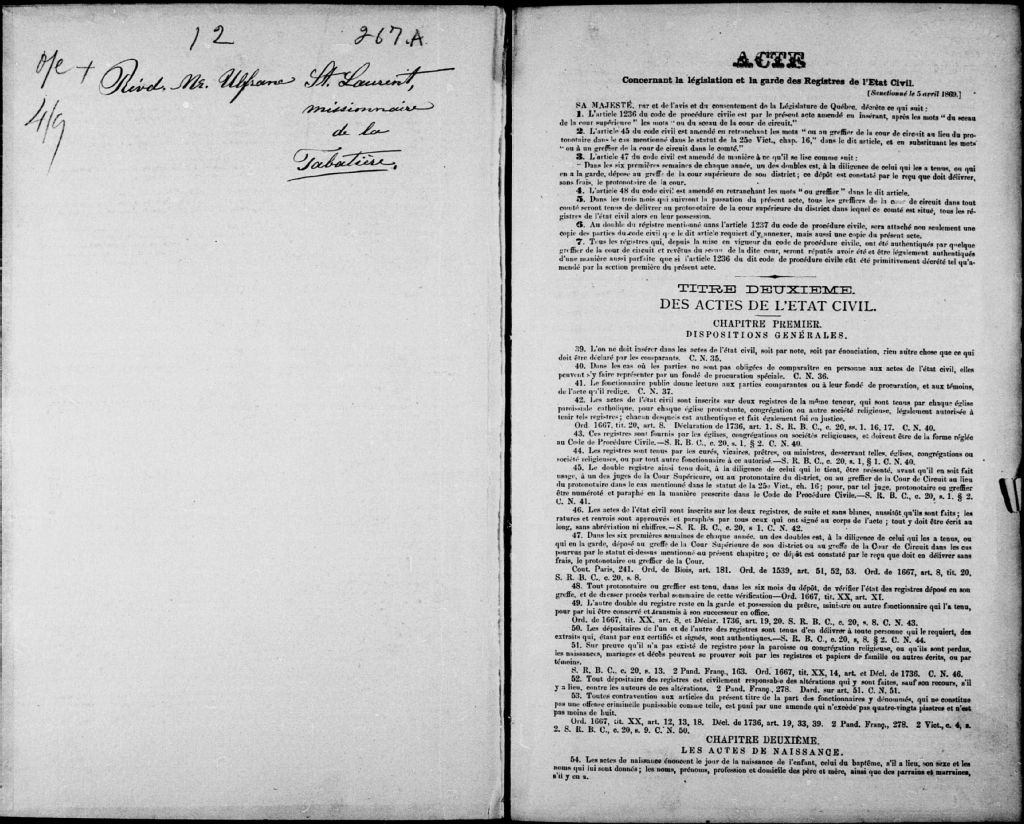 12
267.A
4/9
Révd. Mr. Ulfrane St. Laurent,
missionnaire
de la
Tabatière.
ACTE
Concernant la législation et la garde des Registres de l'Etat Civil.
[Sanctionné le 5 avril 1869.]
SA MAJESTÉ, par et de l'avis et du consentement de la Législature de Québec, décrète ce qui suit :
1. L'article 1236 du code de procédure civile est par le présent acte amendé en insérant, après les mots "du sceau
de la cour supérieure" les mots "ou du sceau de la cour de circuit."
2. L'article 45 du code civil est amendé en retranchant les mots "ou au greffier de la cour de circuit au lieu du pro-
tonotaire dans le cas mentionné dans le statut de la 25e Vict., chap. 16," dans le dit article, et en substituant les mots
"ou à un greffier de la cour de circuit dans le comté."
3. L'article 47 du code civil est amendé de manière à ce qu'il se lise comme suit :
"Dans les six premières semaines de chaque année, un des doubles est, à la diligence de celui qui les a tenus, ou qui
en a la garde, déposé au greffe de la cour supérieure de son district ; ce dépôt est constaté par le reçu que doit délivrer,
sans frais, le protonotaire de la cour.
4. L'article 48 du code civil est amendé en retranchant les mots "ou greffier" dans le dit article.
5. Dans les trois mois qui suivront la passation du présent acte, tous les greffiers de la cour de circuit dans tout
comté seront tenus de délivrer au protonotaire de la cour supérieure du district dans lequel ce comté est situé, tous les ré-
gistres de l'état civil alors en leur possession.
6. Au double du régistre mentionné dans l'article 1237 du code de procédure civile, sera attaché non seulement une
copie des parties du code civil que le dit article requiert d'y annexer, mais aussi une copie du présent acte.
7. Tous les régistres qui, depuis la mise en vigueur du code de procédure civile, ont été authentiqués par quelque
greffier de la cour de circuit et revêtus du sceau de la dite cour, seront réputés avoir été et être légalement authentiqués
d'une manière aussi parfaite que si l'article 1236 du dit code de procédure civile eût été primitivement décrété tel qu'a-
mendé par la section première du présent acte.
TITRE DEUXIEME.
DES ACTES DE L'ETAT CIVIL.
CHAPITRE PREMIER.
DISPOSITIONS GÉNÉRALES.
39. L'on ne doit insérer dans les actes de l'état civil, soit par note, soit par énonciation, rien autre chose que ce qui
doit être déclaré par les comparants. C. N. 35.
40. Dans les cas où les parties ne sont pas obligées de comparaître en personne aux actes de l'état civil, elles
peuvent s'y faire représenter par un fondé de procuration spéciale. C. N. 36.
41. Le fonctionnaire public donne lecture aux parties comparantes ou à leur fondé de procuration, et aux témoins,
de l'acte qu'il rédige. C. N. 37.
42. Les actes de l'état civil sont inscrits sur deux registres de la même teneur, qui sont tenus par chaque église
paroissiale catholique, pour chaque église protestante, congrégation ou autre société religieuse, légalement autorisée à
tenir tels registres ; chacun desquels est authentique et fait également foi en justice.
Ord. 1667, tit. 20, art. 8. Déclaration de 1736, art. 1. S. R. B. C., c. 20, ss. 1. 16, 17. C. N. 40.
43. Ces registres sont fournis par les églises, congrégations ou sociétés religieuses, et doivent être de la forme réglée
au Code de Procédure Civile.—S. R. B. C., c. 20, s. 1, § 2. C. N. 40.
44. Les registres sont tenus par les curés, vicaires, prêtres, ou ministres, desservant telles, églises, congrégations ou
société religieuses, ou par tout autre fonctionnaire à ce autorisé.—S. R. B. C., c. 20, s. 1, § 1. C. N. 40.
45. Le double registre ainsi tenu doit, à la diligence de celui qui le tient, être présenté, avant qu'il en soit fait
usage, à un des juges de la Cour Supérieure, ou au protonotaire du district, ou au greffier de la Cour de Circuit au lieu
du protonotaire dans le cas mentionné dans le statut de la 25e Vict., ch. 16 ; pour, par tel juge, protonotaire ou greffier
être numéroté et paraphé en la manière prescrite dans le Code de Procédure Civile.—S. R. B. C., c. 20, s. 1. § 2.
C. N. 41.
46. Les actes de l'état civil sont inscrits sur les deux registres, de suite et sans blancs, aussitôt qu'ils sont faits ; les
ratures et renvois sont approuvés et paraphés par tous ceux qui ont signé au corps de l'acte ; tout y doit être écrit au
long, sans abréviation ni chiffres.—S. R. B. C., c. 20, s 1. C. N. 42.
47. Dans les six premières semaines de chaque année, un des doubles est, à la diligence de celui qui les a tenus, ou
qui en la garde, déposé au greffe de la Cour Supérieure de son district ou au greffe de la Cour de Circuit dans les cas
pourvus par le statut ci-dessus mentionné au présent chapitre ; ce dépôt est constaté par le reçu que doit en délivrer sans
frais, le protonotaire ou greffier de la Cour.
Cout. Paris, 241. Ord. de Blois, art. 181. Ord. de 1539, art. 51, 52, 53. Ord. de 1667, art. 8, tit. 20,
S. R. B. C., c. 20, s. 8.
48. Tout protonotaire ou greffier est tenu, dans les six mois du dépôt, de vérifier l'état des registres déposé en son
greffe, et de dresser procès verbal sommaire de cette vérification—Ord. 1667, tit. XX, art. XI.
49. L'autre double du registre reste en la garde et possession du prêtre, ministre ou autre fonctionnaire qui l'a tenu,
pour par lui être conservé et transmis à son successeur en office.
Ord. de 1667, tit. XX. art. 8, et Déclar. 1736, art. 19, 20. S. R. B. C., c. 20, s. 8. C. N. 43.
50. Les dépositaires de l'un et de l'autre des registres sont tenus d'en délivrer à toute personne qui le requiert, des
extraits qui, étant par eux certifiés et signés, sont authentiques.—S. R. B. C., c. 20, s, 8, § 2. C. N. 44.
51. Sur preuve qu'il n'a pas existé de registre pour la paroisse ou congrégation religieuse, ou qu'ils sont perdus,
les naissances, mariages et décès peuvent se prouver soit par les registres et papiers de famille ou autres écrits, ou par
témoins.
S. R. B. C., c. 20, s. 13. 2 Pand. Franç., 163. Ord. 1667, tit. XX, 14, art. et Décl. de 1736. C. N. 46.
52. Tout dépositaire des registres est civilement responsable des altérations qui y sont faites, sauf son recours, s'il
y a lieu, contre les auteurs de ces altérations. 2 Pand. Franç., 278. Dard. sur art. 51. C. N. 51.
53. Toutes contravention aux articles du présent titre de la part des fonctionnaires y dénoumés, qui ne constitue
pas une offense criminelle punissable comme telle, est puni par une amende qui n'excède pas quatre-vingts piastres et n'est
pas moins de huit.
Ord. 1667, tit. XX, art. 12, 13, 18. Décl. de 1736, art. 19, 33, 39. 2 Pand. Franç., 278. 2 Vict., c. 4, s.
2. S. R. B. C., c. 20, s. 9. C. N. 50.
CHAPITRE DEUXIÈME.
LES ACTES DE NAISSANCE.
54. Les actes de naissance énoncent le jour de la naissance de l'enfant, celui du baptême, s'il a lieu, son sexe et les
noms qui lui sont donnés ; les noms, prénoms, profession et domicile des père et mère, ainsi que des parrains et marraines,
s'il y en a.